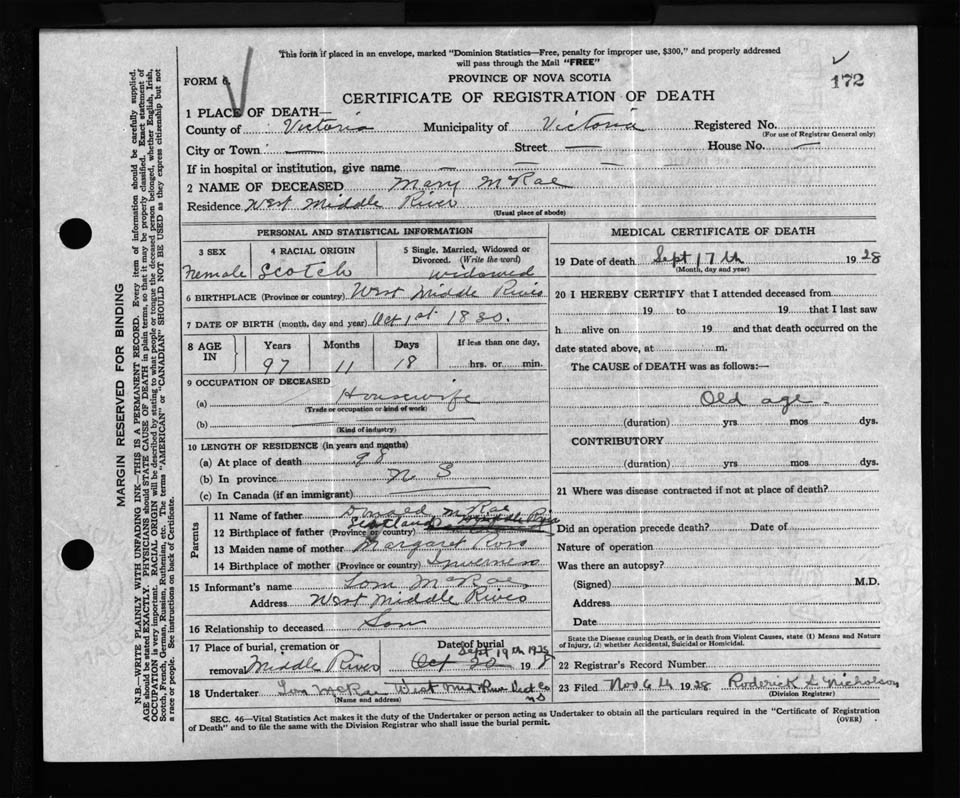 This form if placed in an envelope, marked "Dominion Statistics—Free, penalty for improper use, $300," and properly addressed
will pass through the Mail "FREE"
FORM 6
PROVINCE OF NOVA SCOTIA
172
CERTIFICATE OF REGISTRATION OF DEATH
1 PLACE OF DEATH—
County of Victoria Municipality of Victoria Registered No.
(For use of Registrar General only)
City or Town — Street — House No. —
If in hospital or institution, give name — — —
2 NAME OF DECEASED Mary McRae
Residence West Middle River
(Usual place of abode)
PERSONAL AND STATISTICAL INFORMATION
3 SEX 4 RACIAL ORIGIN 5 Single, Married, Widowed or
Divorced. (Write the word)
Female Scotch widowed
6 BIRTHPLACE (Province or country) West Middle River
7 DATE OF BIRTH (month, day and year) Oct 1st 1830.
8 AGE IN Years Months Days If less than one day,
97 11 18 hrs. or min.
9 OCCUPATION OF DECEASED
(a) Housewife
(Trade or occupation or kind of work)
(b)
(Kind of industry)
10 LENGTH OF RESIDENCE (in years and months)
(a) At place of death 98
(b) In province N S
(c) In Canada (if an immigrant)
Parents
11 Name of father Donald McRae
12 Birthplace of father (Province or country) Scotland Middle River
13 Maiden name of mother Margaret Ross
14 Birthplace of mother (Province or country) Inverness
15 Informant's name Tom McRae
Address West Middle River
16 Relationship to deceased Son
17 Place of burial, cremation or Date of burial
removal Middle River Sept 19th 1928 Oct 30 1928
18 Undertaker Tom McRae West Mid River Vict Co
N S
(Name and address)
MEDICAL CERTIFICATE OF DEATH
19 Date of death Sept 17th 1928
(Month, day and year)
20 I HEREBY CERTIFY that I attended deceased from
19 to 19 that I last saw
h alive on 19 and that death occurred on the
date stated above, at m.
The CAUSE of DEATH was as follows:—
Old age.
(duration) yrs mos dys.
CONTRIBUTORY
(duration) yrs mos dys.
21 Where was disease contracted if not at place of death?
Did an operation precede death? Date of
Nature of operation
Was there an autopsy?
(Signed) M.D.
Address
Date
State the Disease causing Death, or in death from Violent Causes, state (1) Means and Nature
of Injury, (2) whether Accidental, Suicidal or Homicidal.
22 Registrar's Record Number
23 Filed Nov 6th 1928 Roderick A Nicholson
(Division Registrar)
SEC. 46—Vital Statistics Act makes it the duty of the Undertaker or person acting as Undertaker to obtain all the particulars required in the "Certificate of Registration
of Death" and to file the same with the Division Registrar who shall issue the burial permit.
(OVER)
MARGIN RESERVED FOR BINDING
N.B.—WRITE PLAINLY WITH UNFADING INK—THIS IS A PERMANENT RECORD. Every item of information should be carefully supplied.
AGE should be stated EXACTLY. PHYSICIANS should STATE CAUSE OF DEATH in plain terms, so that it may be properly classified. Exact statement of
OCCUPATION is very important. RACIAL ORIGIN will be described by stating to what people or tongue the deceased person belonged, whether English, Irish,
Scotch, French, German, Russian, Ruthenian, etc. The terms "AMERICAN" or "CANADIAN" SHOULD NOT BE USED as they express citizenship but not
a race or people. See instructions on back of Certificate.